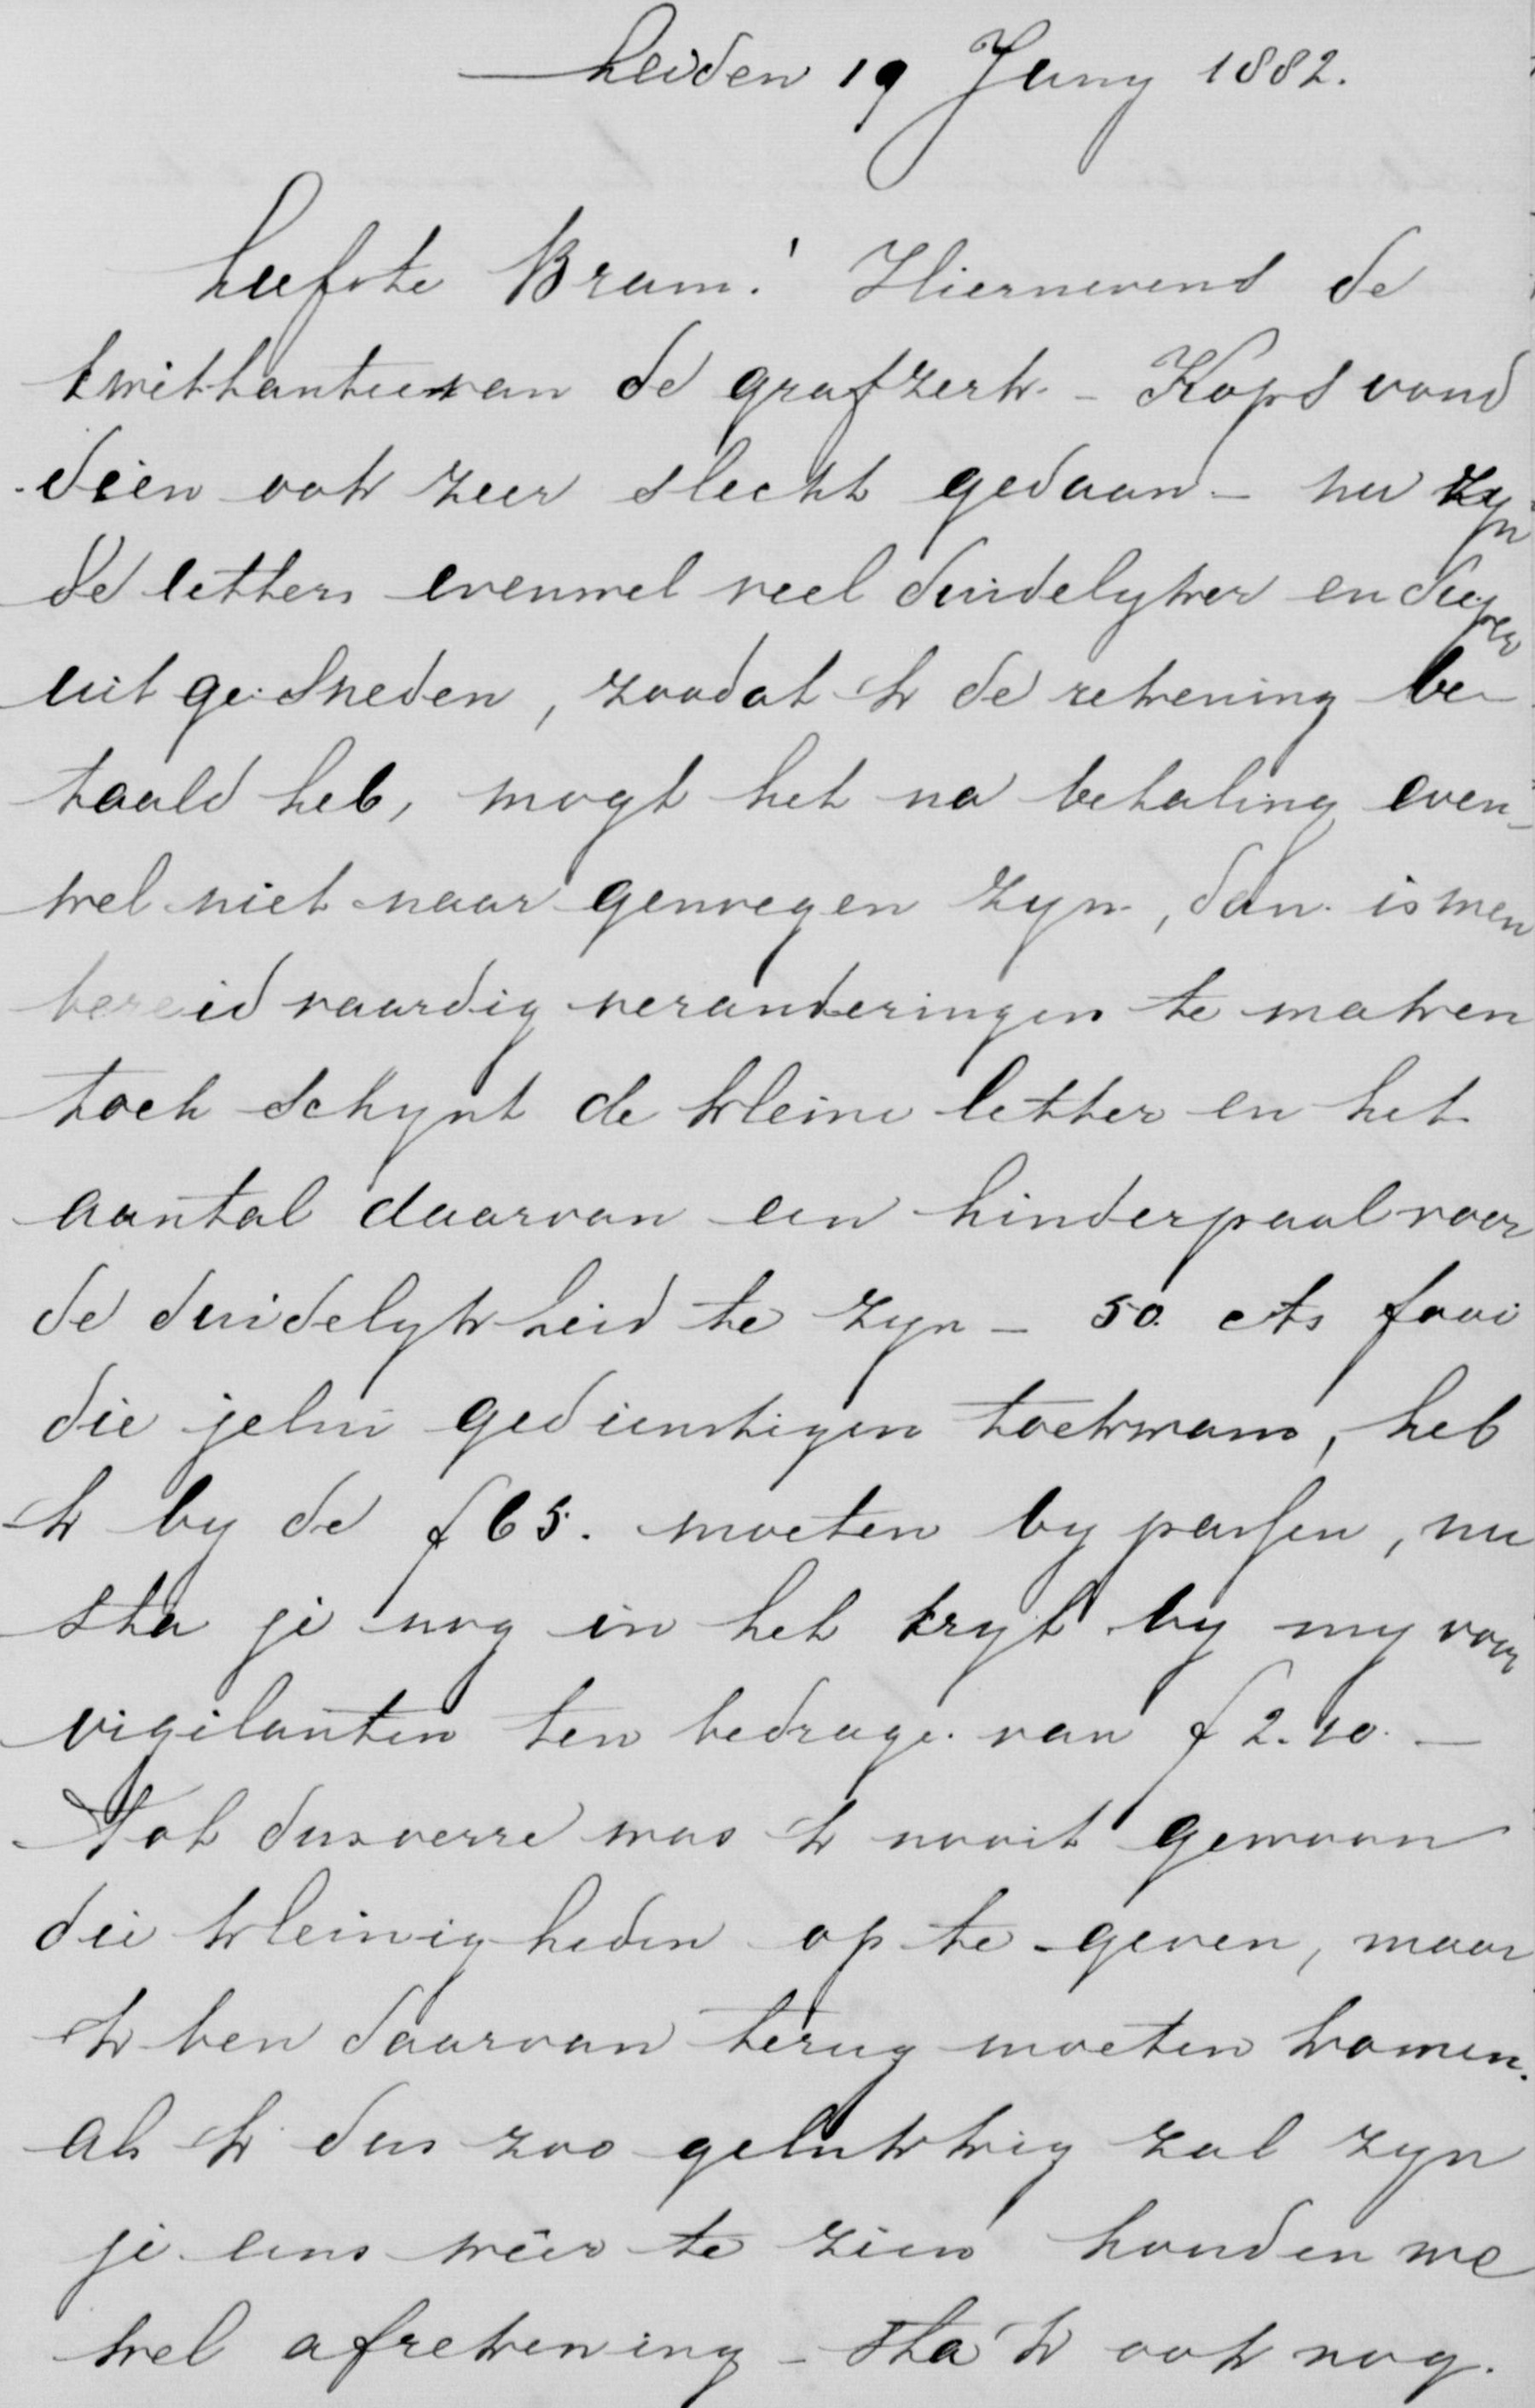 Leiden 19 Juny 1882.
Liefste Bram! Hiernevens de
kwithantie van de grafzerk. - Kops vond
dien ook zeer slecht gedaan - nu zyn
de letters evenwel veel duidelyker en dieper
uitgesneden, zoodat ik de rekening be-
taald heb, mogt het na betaling even-
wel niet naar genoegen zyn, dan is men
bereidvaardig veranderingen te maken
toch schynt de kleine letter en het
aantal daarvan een hinderpaal voor
de duidelykheid te zyn - 50 cts fooi
die jelui gedienstigen toekwam, heb
ik by de f 65. moeten by passen, nu
sta je nog in het kryt by my voor
vigilanten ten bedrage van f 2.10. -
Tot dusverre was ik nooit gewoon
die kleinigheden op te geven, maar
ik ben daarvan terug moeten komen.
Als ik dus zoo gelukkig zal zyn
je eens wêer te zien houden we
wel afrekening - Sta ik ook nog.